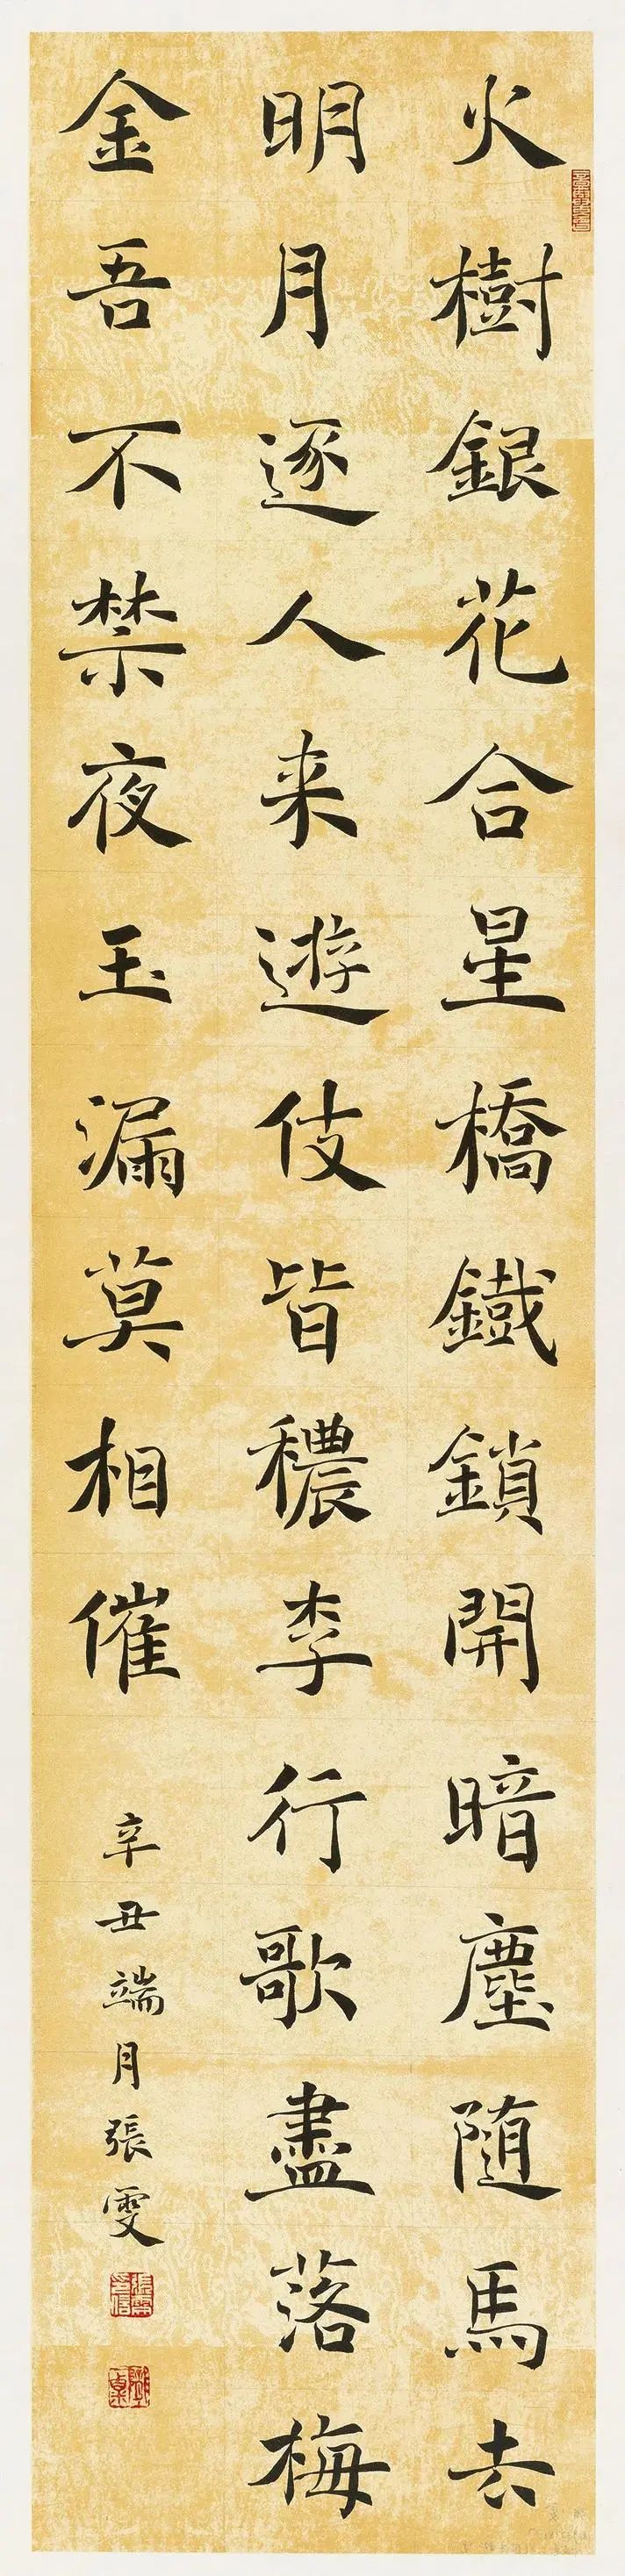 火樹銀花合星橋鐵鎖開暗塵随馬去
明月逐人来遊伎皆穠李行歌盡落梅
金吾不禁夜玉漏莫相催
辛丑端月張雯